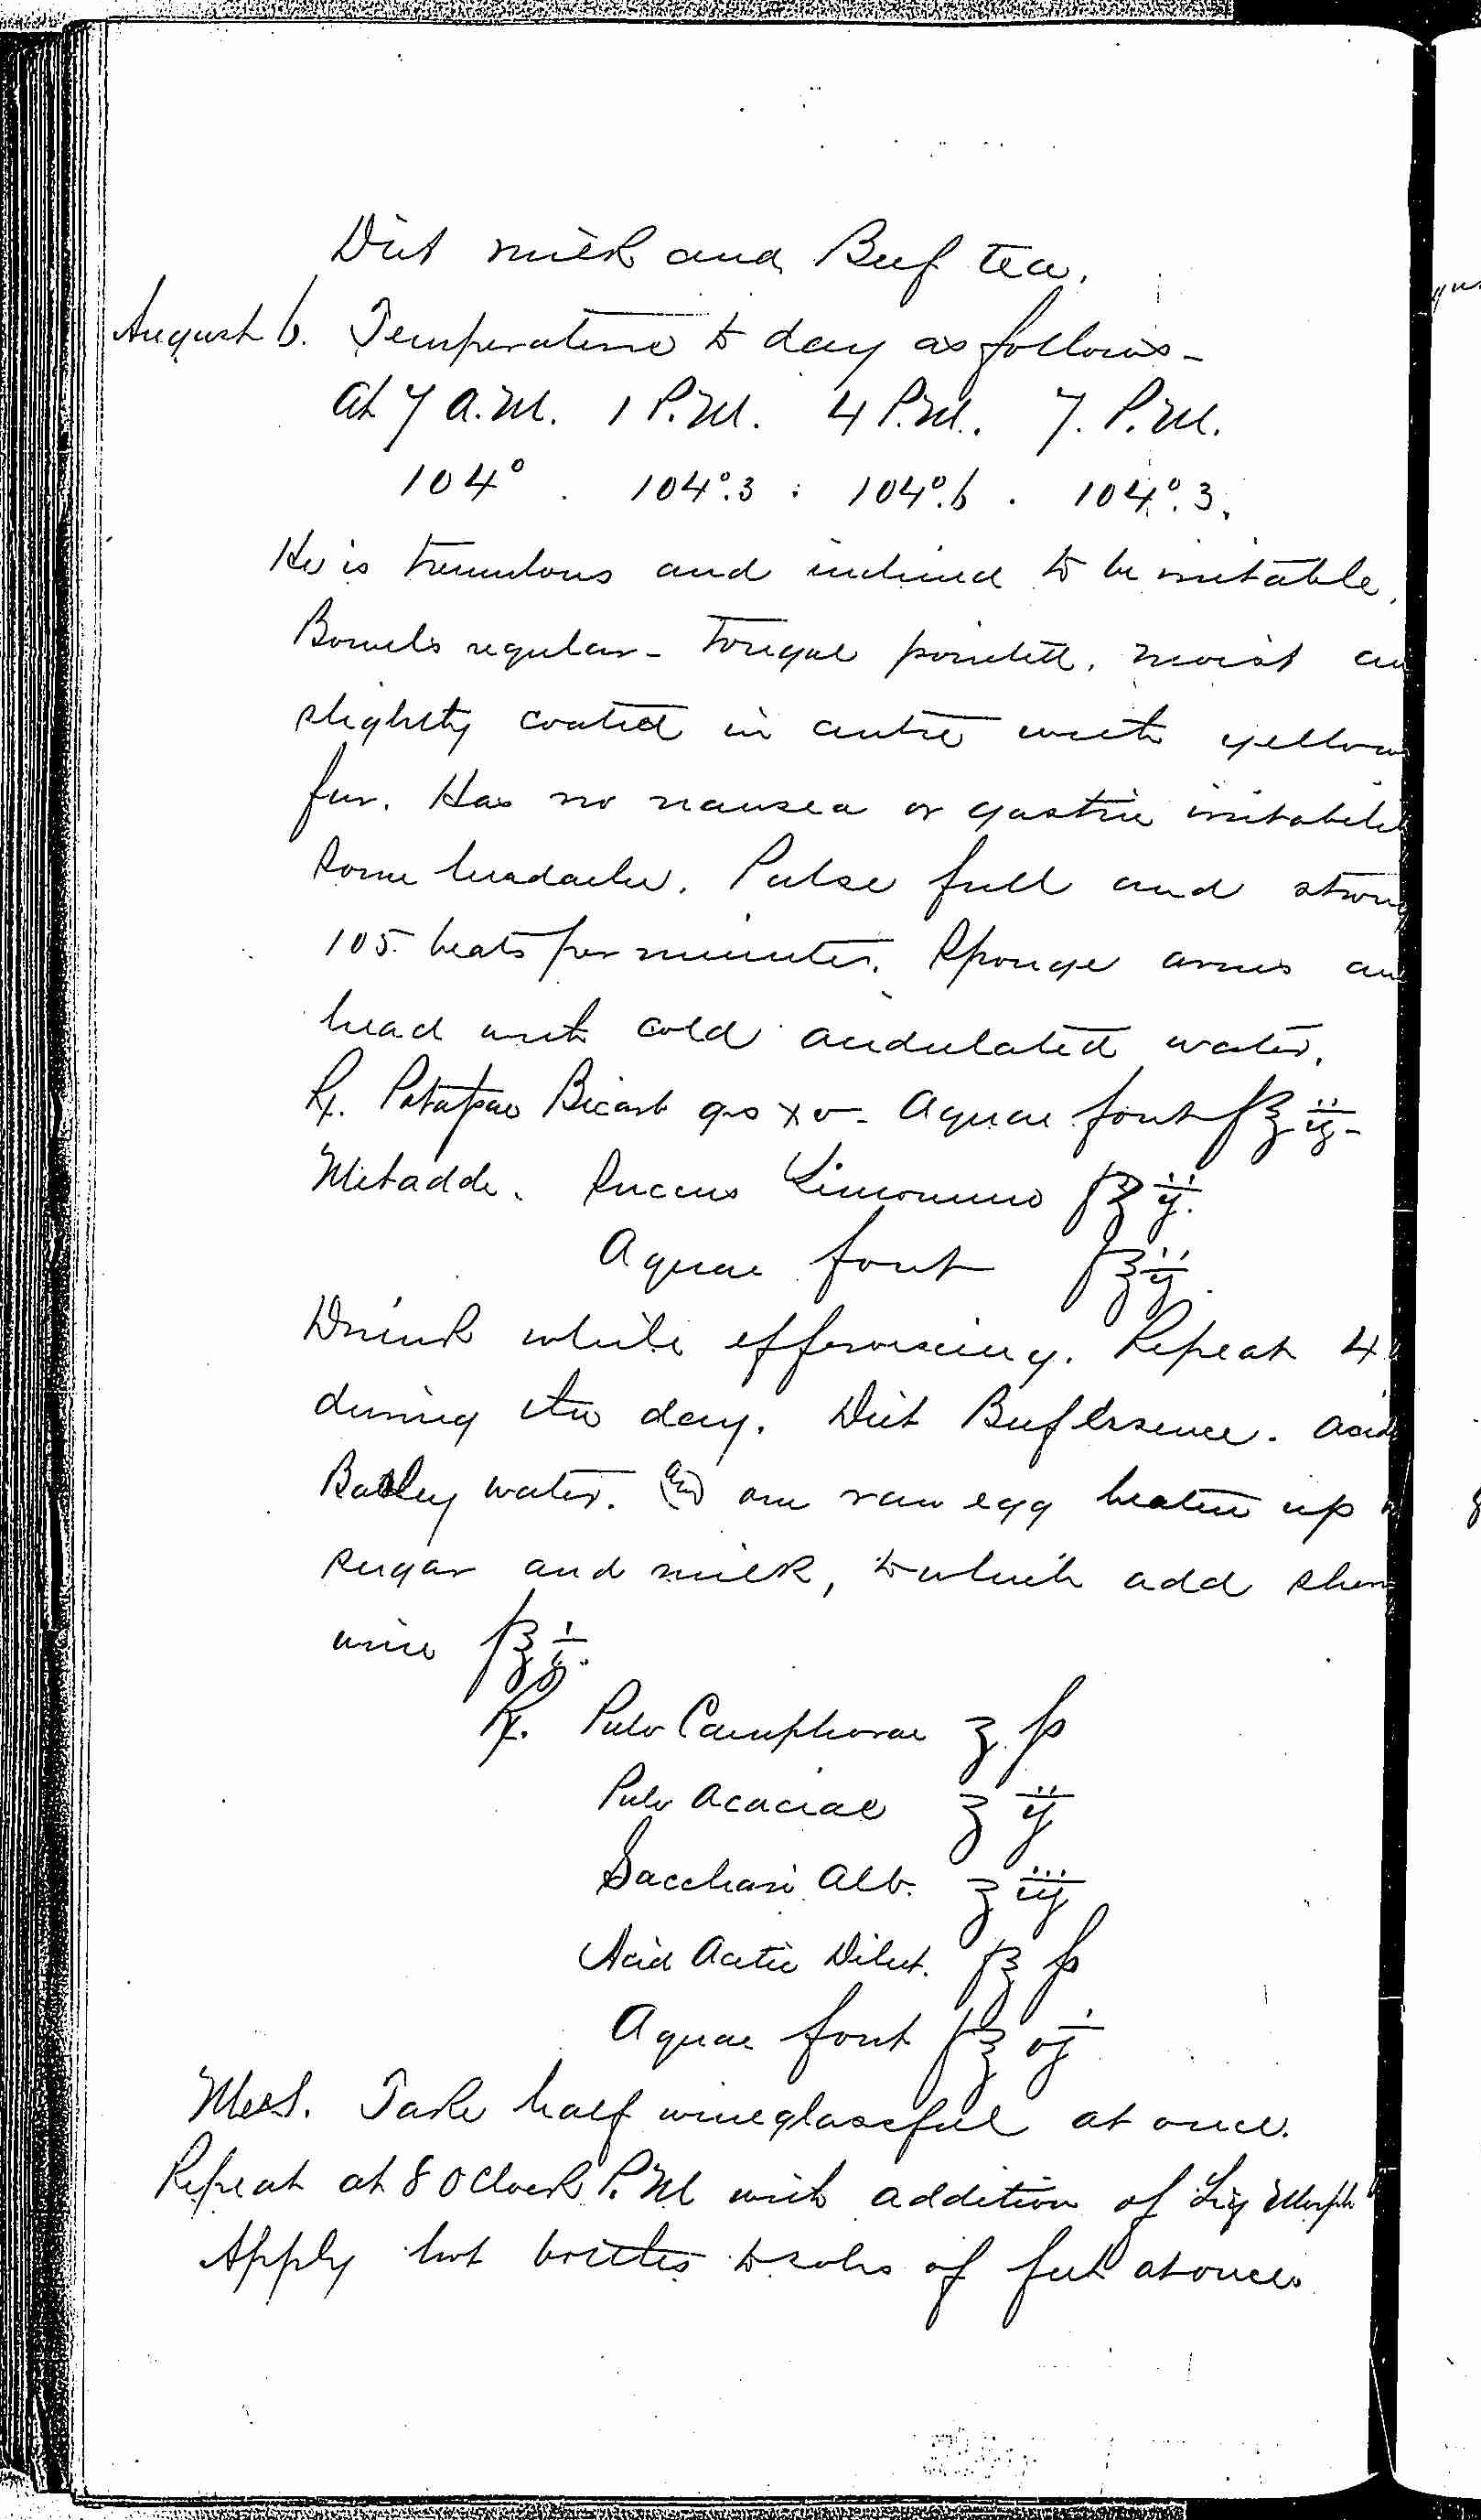 Diet milk and Beef tea.
August 6. Temperature to day as follows-
At 7 A.M. 1 P.M. 4 P.M. 7. P.M.
104° . 104°.3 : 104°.6 . 104°.3.
He is tremulous and inclined to be irritable.
Bowels regular- Tongue pointed, moist an
slightly coated in centre with yellow
fur. Has no nausea or gastric irritabilit
Some headache. Pulse full and strong
105 beats per minute. Sponge arms an
head with cold acidulated water.
℞. Potassae Bicarb grs xv- Aquae font f℥ ij-
Mit adde. Succus Limonum f℥ ij.
Aquae font f℥ ij.
Drink while effervescing. Repeat 4
during the day. Diet Beef Essence. Acid
Barley water. and one raw egg beaten up
sugar and milk, to which add sher
wine f℥ j.
℞. Pulv Camphorae ʒ ss
Pulv Acaciae ʒ ij
Sacchari Alb. ʒ iij
Acid Acetic Dilut. f℥ ss
Aquae font f℥ vj
Take half wineglassful at once.
Repeat at 8 OClock P.M with addition of Liq Morph
Apply hot bottles to soles of feet at once